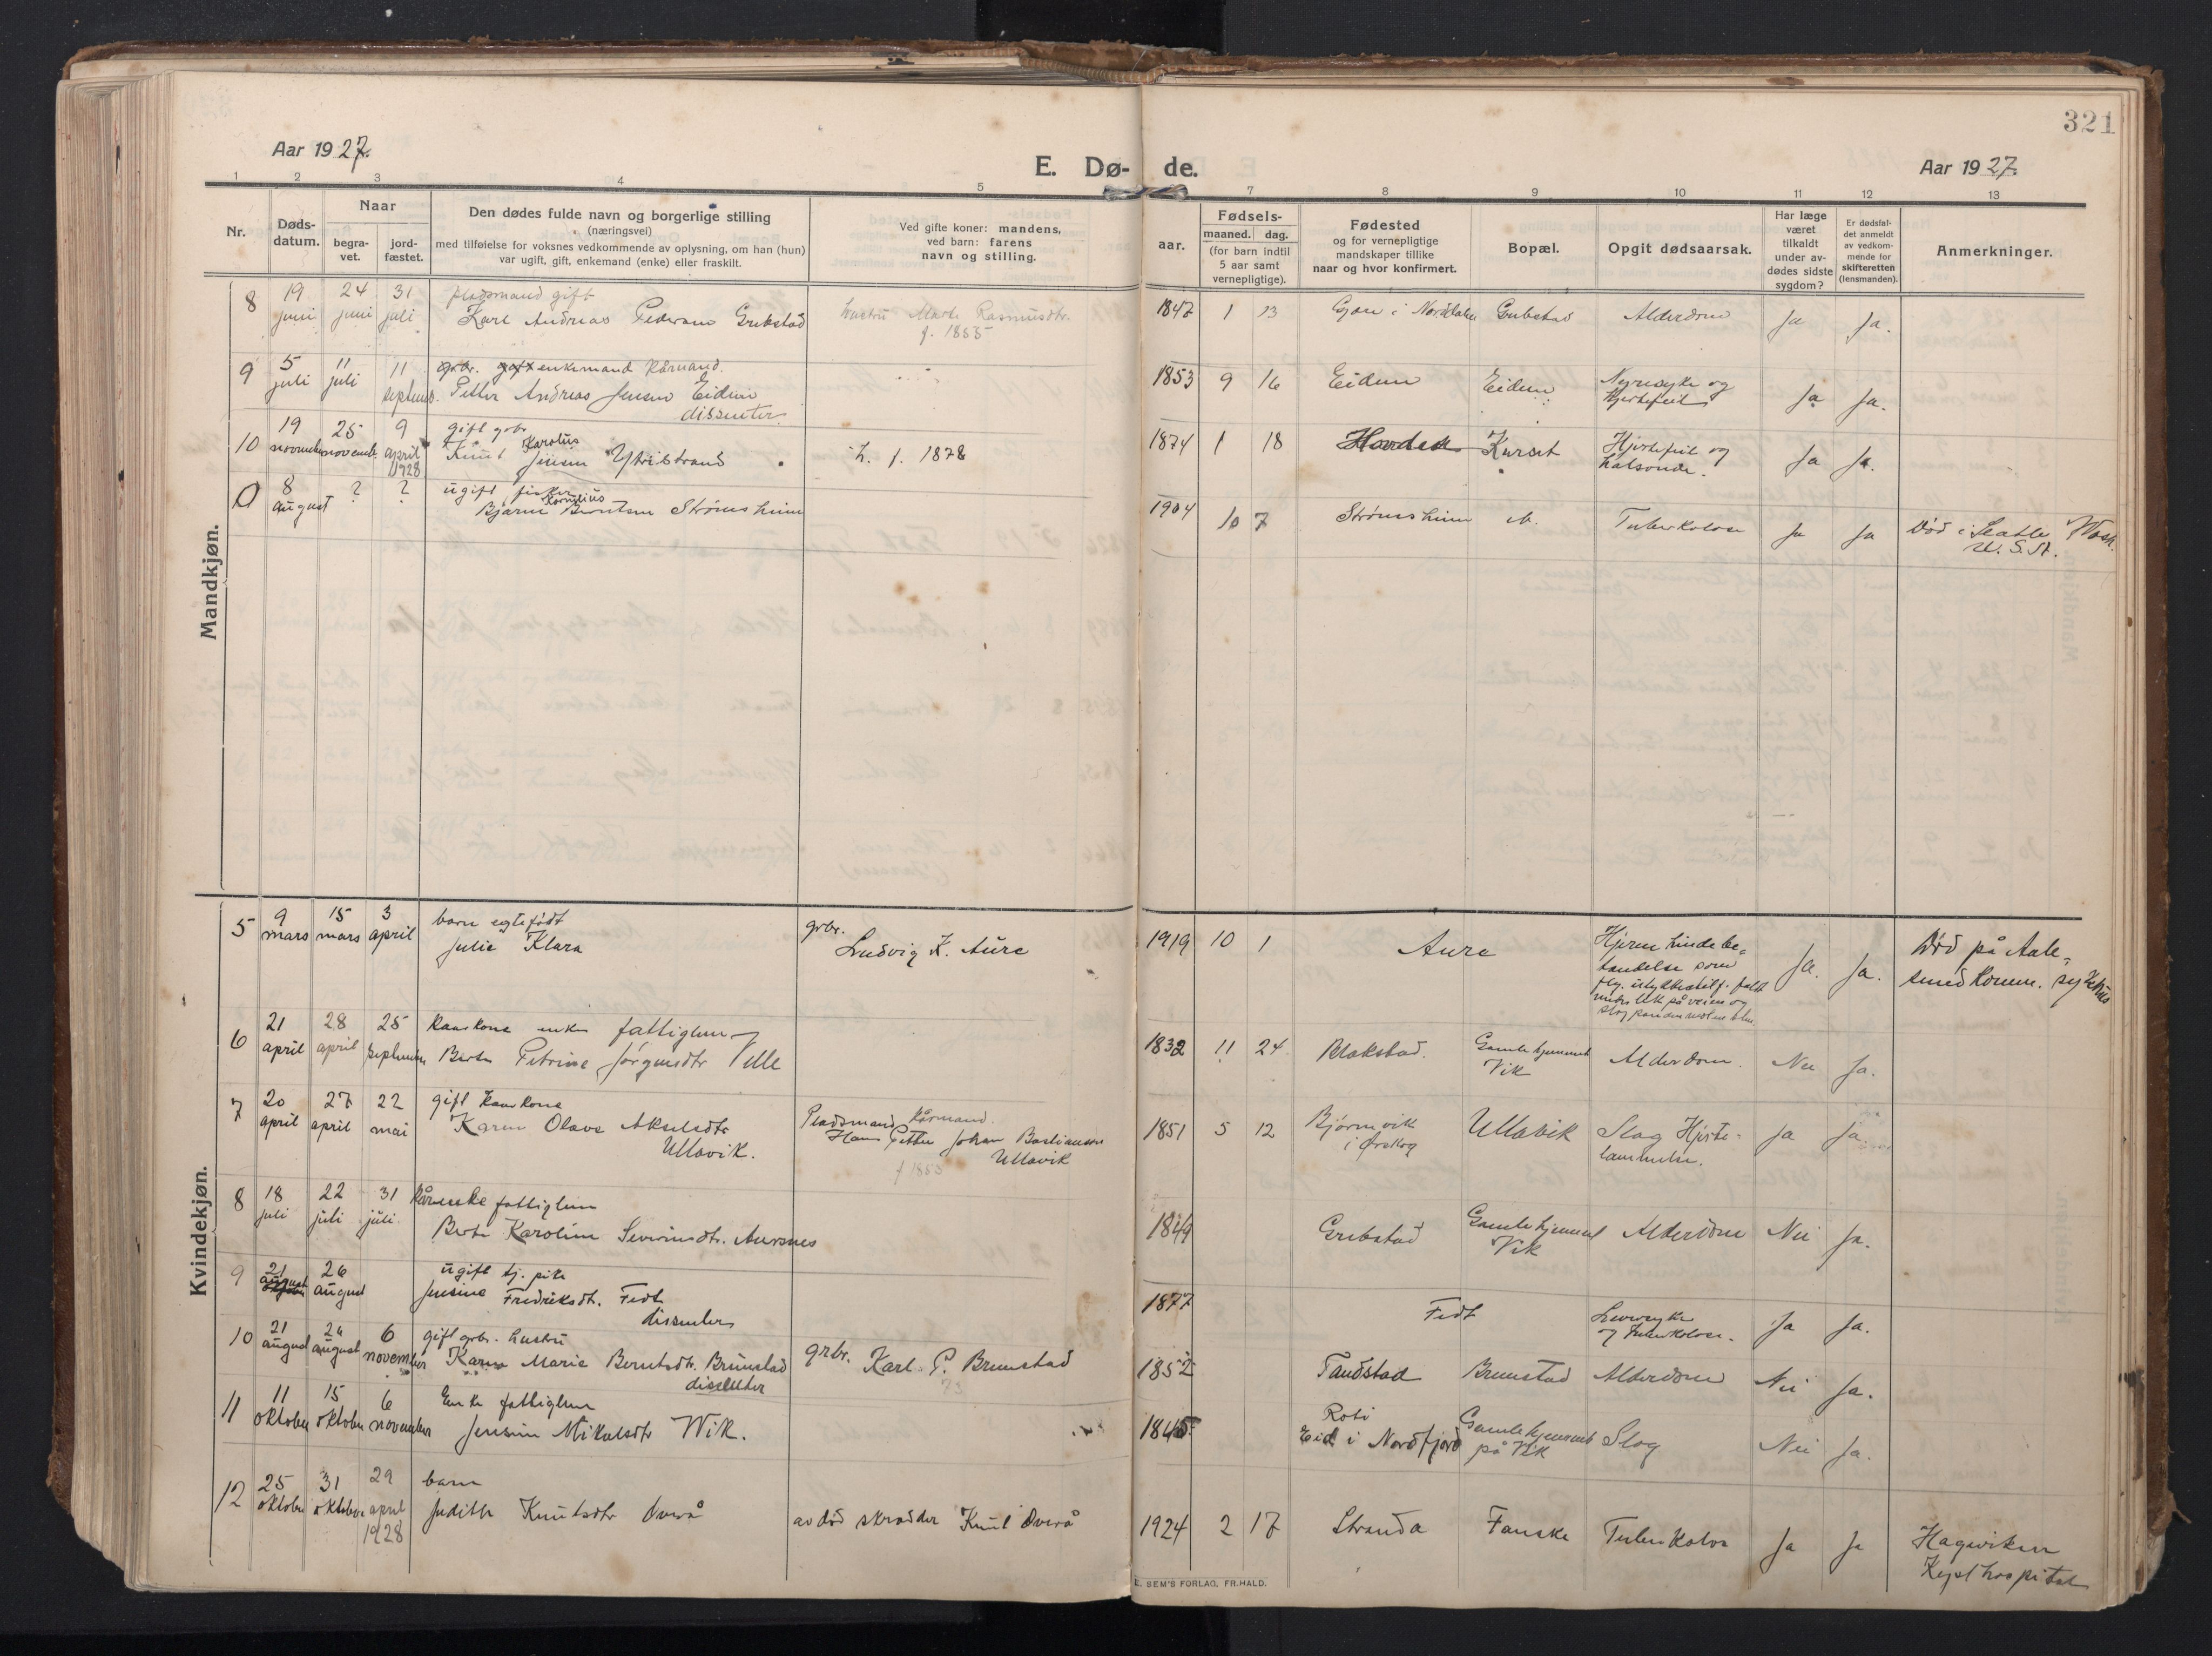 321
Aar 1927.
E. Dø-
de.
Aar 1927.
1 2 3 4 5
7 8 9 10 11 12 13
Nr.
Døds-
datum.
Naar
begra-
vet.
jord-
fæstet.
Den dødes fulde navn og borgerlige stilling
(næringsvei)
med tilføielse for voksnes vedkommende av oplysning, om han (hun)
var ugift, gift, enkemand (enke) eller fraskilt.
Ved gifte koner: mandens,
ved barn: farens
navn og stilling.
aar.
Fødsels-
maaned. dag.
(for barn indtil
5 aar samt
vernepligtige).
Fødested
og for vernepligtige
mandskaper tillike
naar og hvor konfirmert.
Bopæl.
Opgit dødsaarsak.
Har læge
været
tilkaldt
under av-
dødes sidste
sygdom?
Er dødsfal-
det anmeldt
av vedkom-
mende for
skifteretten
(lensmanden).
Anmerkninger.
Mandkjøn.
8
19 juni
24 juni
31 juli
pladsmand gift
Karl Andreas Pedersen Grebstad
hustru Marte Rasmusdtr.
f. 1855
1847 1 23
i Norddalen
Grebstad
Alderdom
Ja Ja.
9
5 juli
11 juli
11 septemb.
grbr. gift enkemand kårmand.
Petter Andreas Jensen Eidem
dissenter
1853 9 16
Eidem
Eidem
Nyresyke og
hjertefeil
Ja Ja.
10
19 november
25 novembr.
9 april 1928
gift grbr
Knut Karolus Jensen Ytrestrand
h. f. 1878
1874 1 18
Hovden
Kurset
Hjertefeil og
halsonde.
Ja Ja.
0
8 august
?
?
ugift fisker
Bjarne Kornelius Berntsen Strømsheim
1904 10 7
Strømsheim
Tuberkolose
Ja Ja
Død i Seatle Wash.
U. S. A.
Kvindekjøn.
5
9 mars
15 mars
3 april
barn egtefødt
Julie Klara
grbr.
Ludvig K. Aure
1919 10 1
Aure
Hjernehindebe-
tændelse som
Ja. Ja.
Død på Aale-
sund komm. sykehus
6
21 april
28 april
25 september
kaarkone enke fattiglem
Berte Petrine Jørgensdtr Velle
1832 11 24
Blakstad.
Gamlehjemmet
Vik
Alderdom.
Nei Ja.
7
20 april
27 april
22 mai
gift kaarkone
Karen Olave Akselsdtr
Ullavik.
Pladsmand kårmand.
Hans Petter Johan Bastiansen
Ullavik
f 1853
1851 5 12
Bjørnevik
i Ørskog
Ullavik
Slag Hjerte-
lammelse.
Ja Ja.
8
18 juli
22 juli
31 juli
Kårenke fattiglem
Berte Karoline Severinsdtr. Aursnes
1849
Grebstad
Gamlehjemmet
Vik
Alderdom
Nei Ja.
9
21 august
26 august
ugift tj. pike
Jensine Fredriksdt. Fedt
dissenter
1877
Fedt
Leversyke
og Tuberkolose.
Ja Ja.
10
21 august
24 august
6 november
gift grbr. hustru
Karen Marie Berntsdtr. Brunstad
dissenter
grbr. Karl P. Brunstad
73
1852
Tandstad
Brunstad
Alderdom
Nei Ja.
11
11 oktober
15 oktober
6 november
Enke fattiglem
Jensine Mikalsdtr Wik.
1845
Roti
Eid i Nordfjord
Gamlehjemmet
på Vik
Slag
Nei Ja.
12
25 oktober
31 oktober
29 april 1928
barn
Judith Knutsdtr Overå
avdød skrædder Knut Overå
1924 2 17
Stranda
Fauske
Tuberkolose
Ja Ja
Hagevikens
Kysthospital
E. SEM'S FORLAG, FR.HALD.